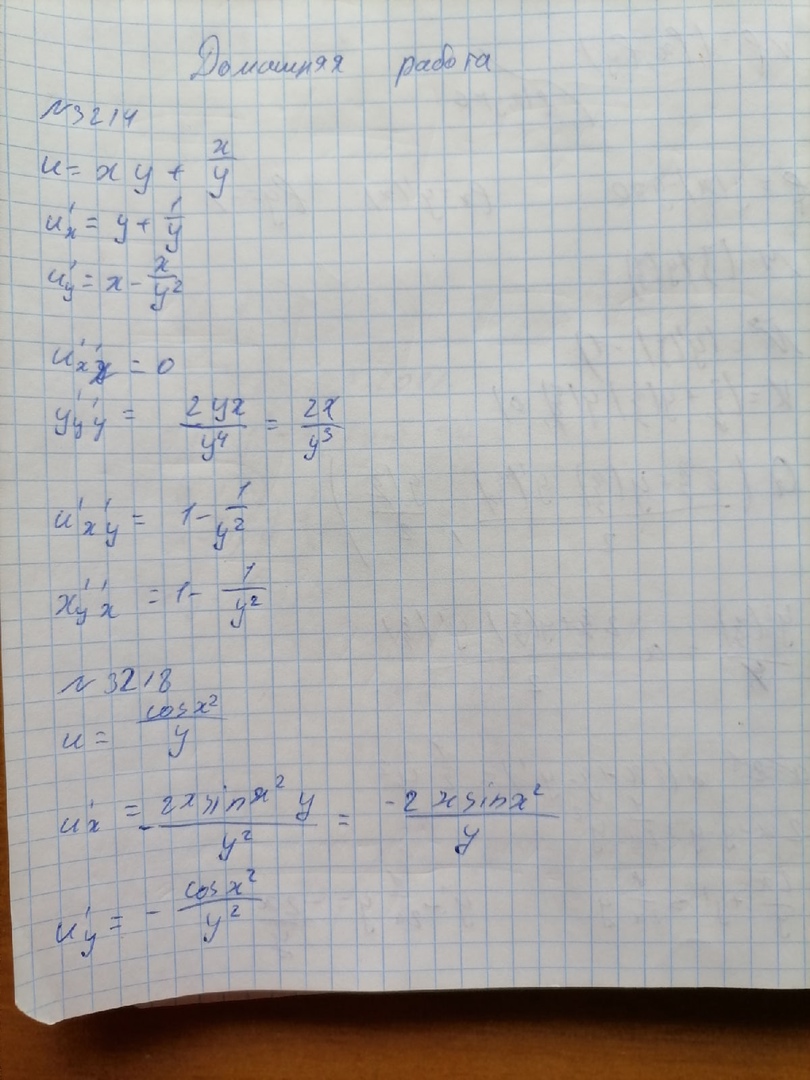 Домашняя работа
№3214
u = xy + x/y
u'x = y + 1/y
u'y = x - x/y²
u'x'x = 0
y'y'y = 2yx/y⁴ = 2x/y³
u'x'y = 1 - 1/y²
x'y'x = 1 - 1/y²
№3218
u = cosx²/y
u'x = - 2x sinx² y/y² = -2x sinx²/y
u'y = - cosx²/y²